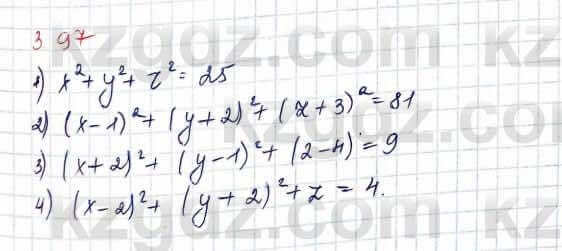 397
1) x²+y²+z²=25
2) (x-1)²+(y+2)²+(z+3)²=81
3) (x+2)²+(y-1)²+(2-4)=9
4) (x-2)²+(y+2)²+z=4.
kzgdz.com